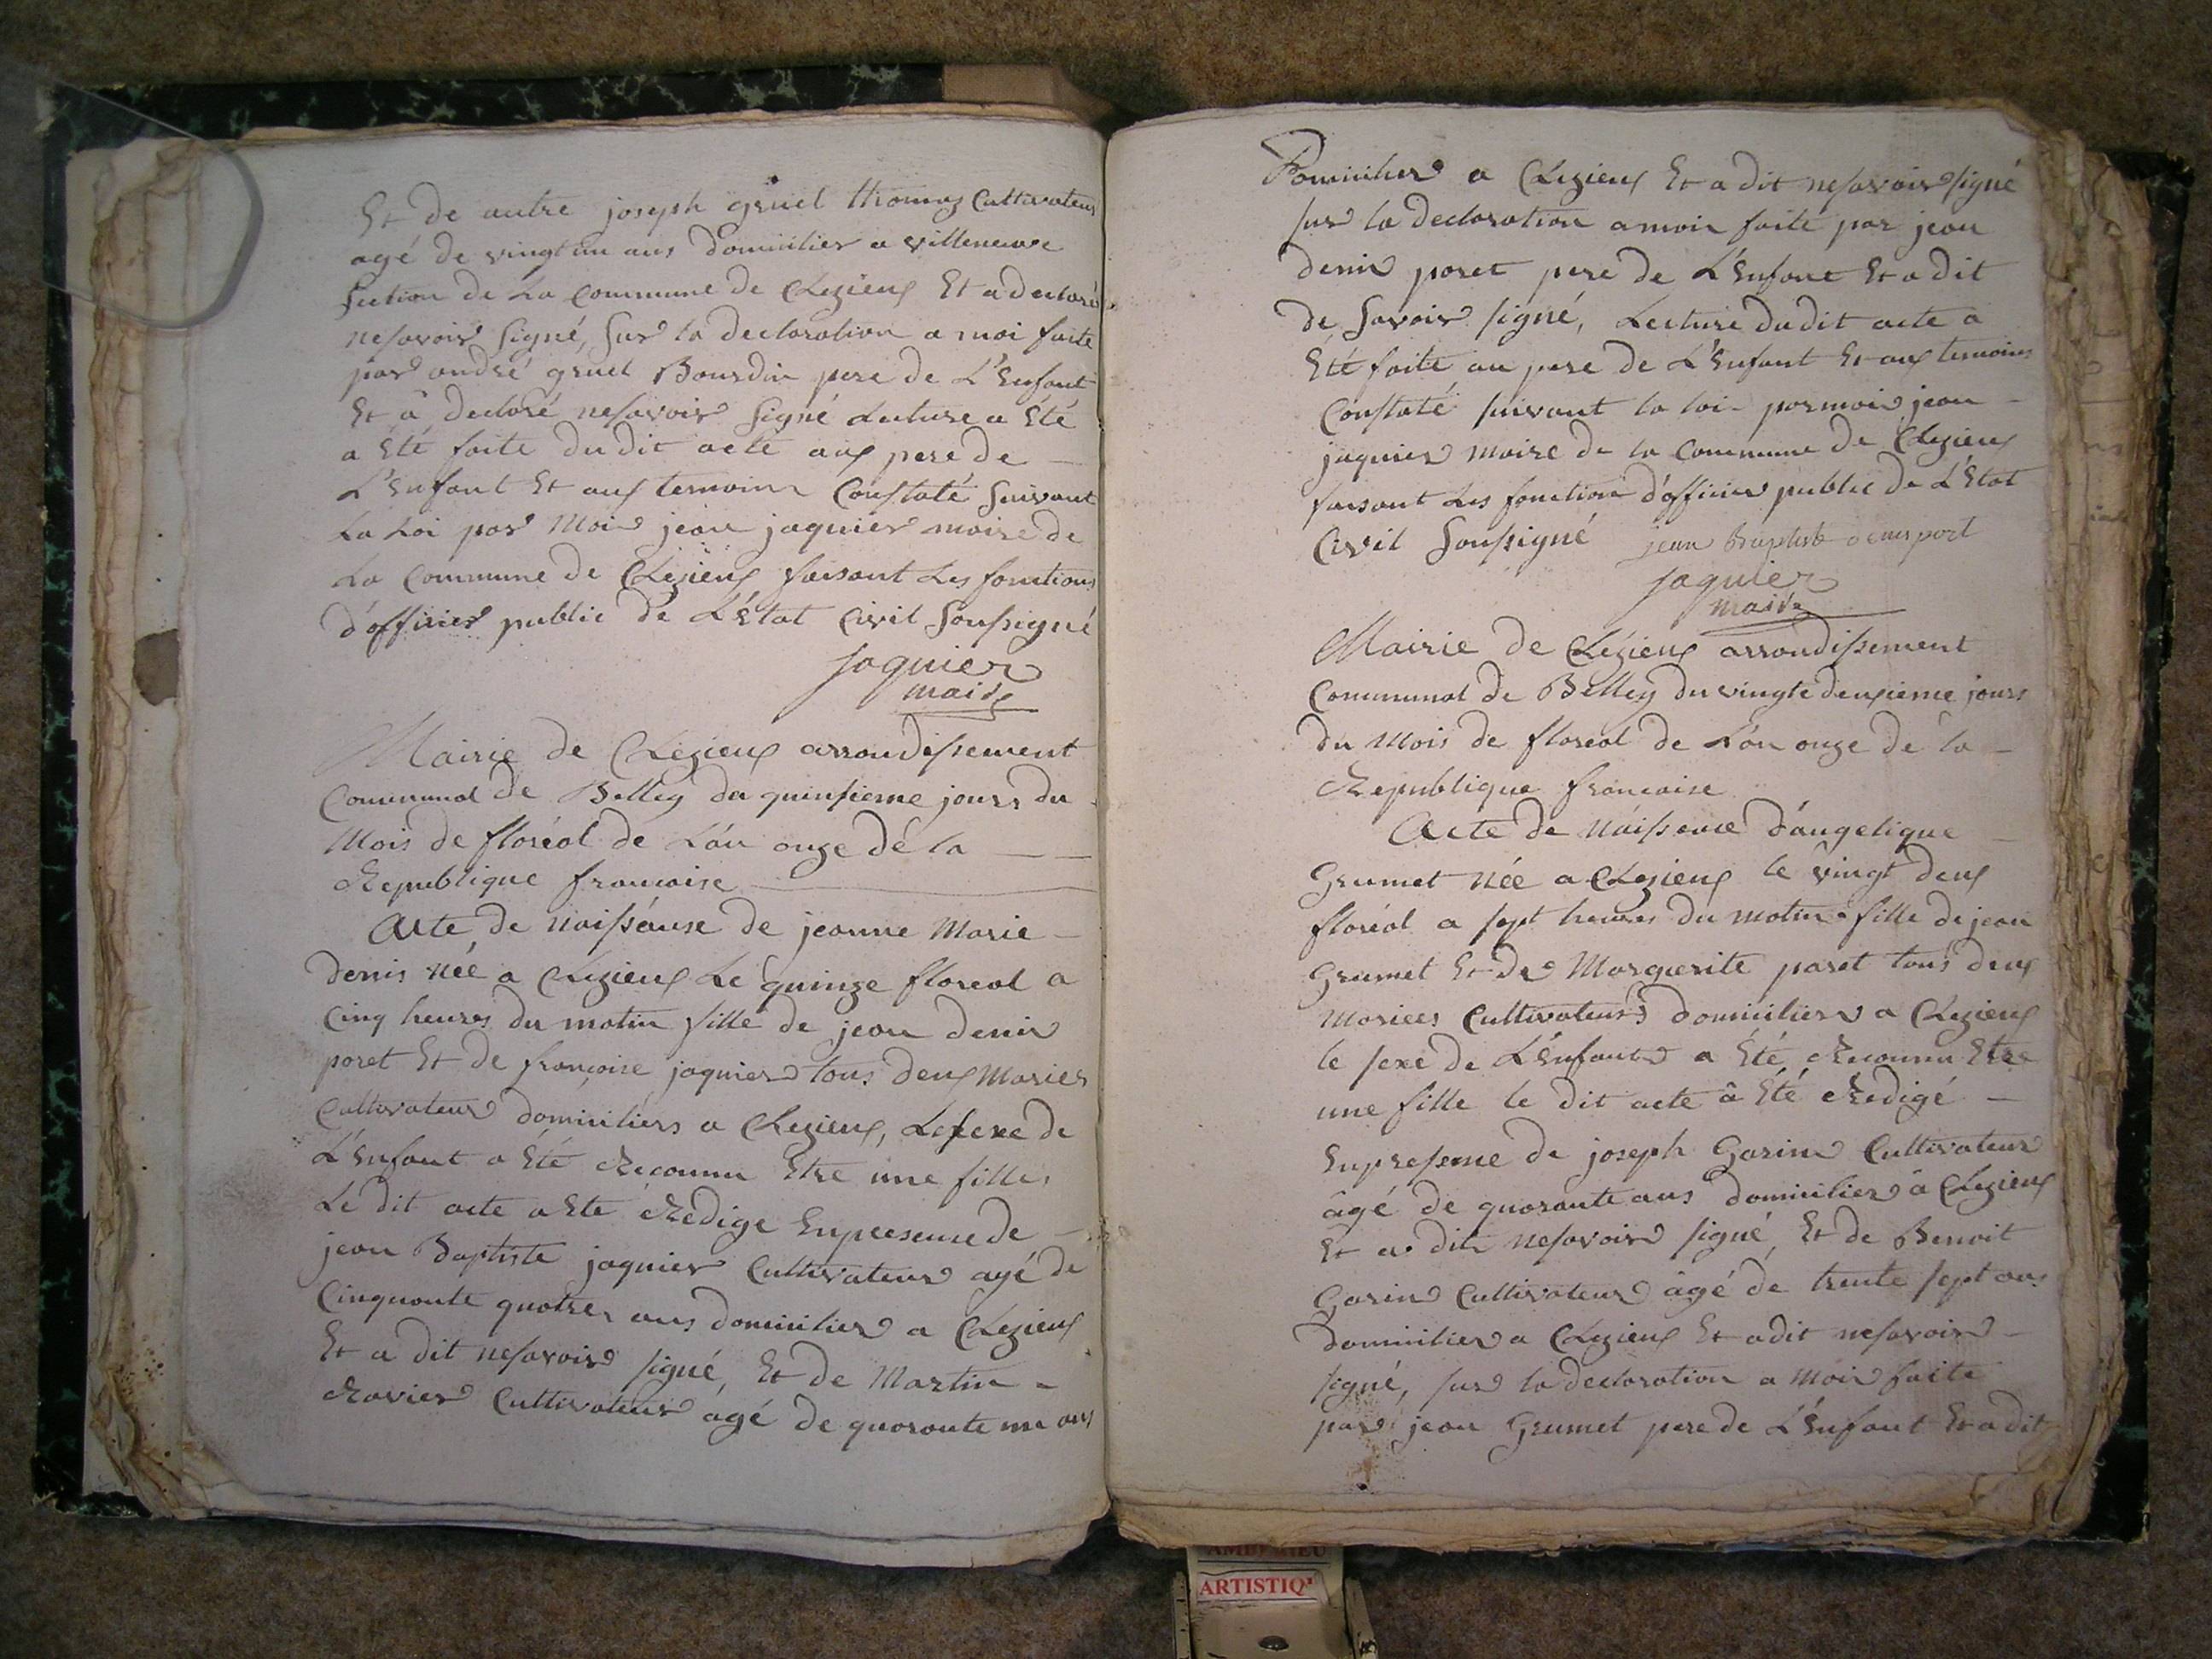 Et de autre joseph gruel thomas Cultivateur
agé de vingt un ans domicilier a villeneuve
section de La Commune de Lézieux Et a declaré
nesavoir Signé, Sur la declaration a moi faite
par andré gruel Bourdin pere de L'Enfant
Et à declaré nesavoir Signé Lecture a Été
a Été faite du dit acte aux pere de
L'Enfant Et aux temoins Constaté Suivant
La Loi par Moi jean jaquier maire de
La Commune de Lézieux faisant Les fonctions
d'officier public de L'Etat Civil Soussigné
jaquier
maire
Mairie de Lézieux arrondissement
Communal de Belley du quinsieme jours du
Mois de floréal de L'an onze de la
Republique francaise
Acte de naissanse de jeanne Marie
denis née a Lezieux Le quinze floreal a
Cinq heures du matin fille de jean denis
poret Et de francoise jaquier tous deux Mariés
Cultivateur domiciliers a Lezieux, Le sexe de
L'Enfant a Été Reconnu Etre une fille,
Le dit acte a Ete Redige Enpresence de
jean Baptiste jaquier Cultivateur agé de
Cinquante quatre ans domicilier a Lezieux
Et a dit nesavoir signé, Et de Martin
Ravier Cultivateur agé de quarante un ans
Domicilier a Lezieux Et a dit nesavoir signé
sur la declaration a moi faite par jean
denis poret pere de L'Enfant Et a dit
de Savoir signé, Lecture du dit acte a
Été faite au pere de L'Enfant Et aux temoins
Constaté suivant la loi par moi jean
jaquier maire de la Commune de Lezieux
faisant Les fonction d'officier public de L'Etat
Civil Soussigné jean Baptiste denis poret
jaquier
maire
Mairie de Lézieux arrondissement
Communal de Belley du vingte deuxieme jours
du Mois de floréal de L'an onze de la
Republique francaise
Acte de Naissence d'angelique
Grumet née a Lezieux le vingt deux
floréal a sept heures du matin fille de jean
Grumet Et de Marguerite paret tous deux
Mariees Cultivateurs domiciliers a Lezieux
le sexe de L'Enfant a Été Reconnu Etre
une fille le dit acte â Été Redigé
Enpresense de joseph Garin Cultivateur
âgé de quarante ans domicilier à Lezieux
Et a dit nesavoir signé, Et de Benoit
Garin Cultivateur âgé de trente sept ans
domicilier a Lezieux Et a dit nesavoir
signé, sur la declaration a Moi faite
par jean Grumet pere de L'Enfant Et a dit
ARTISTIQ